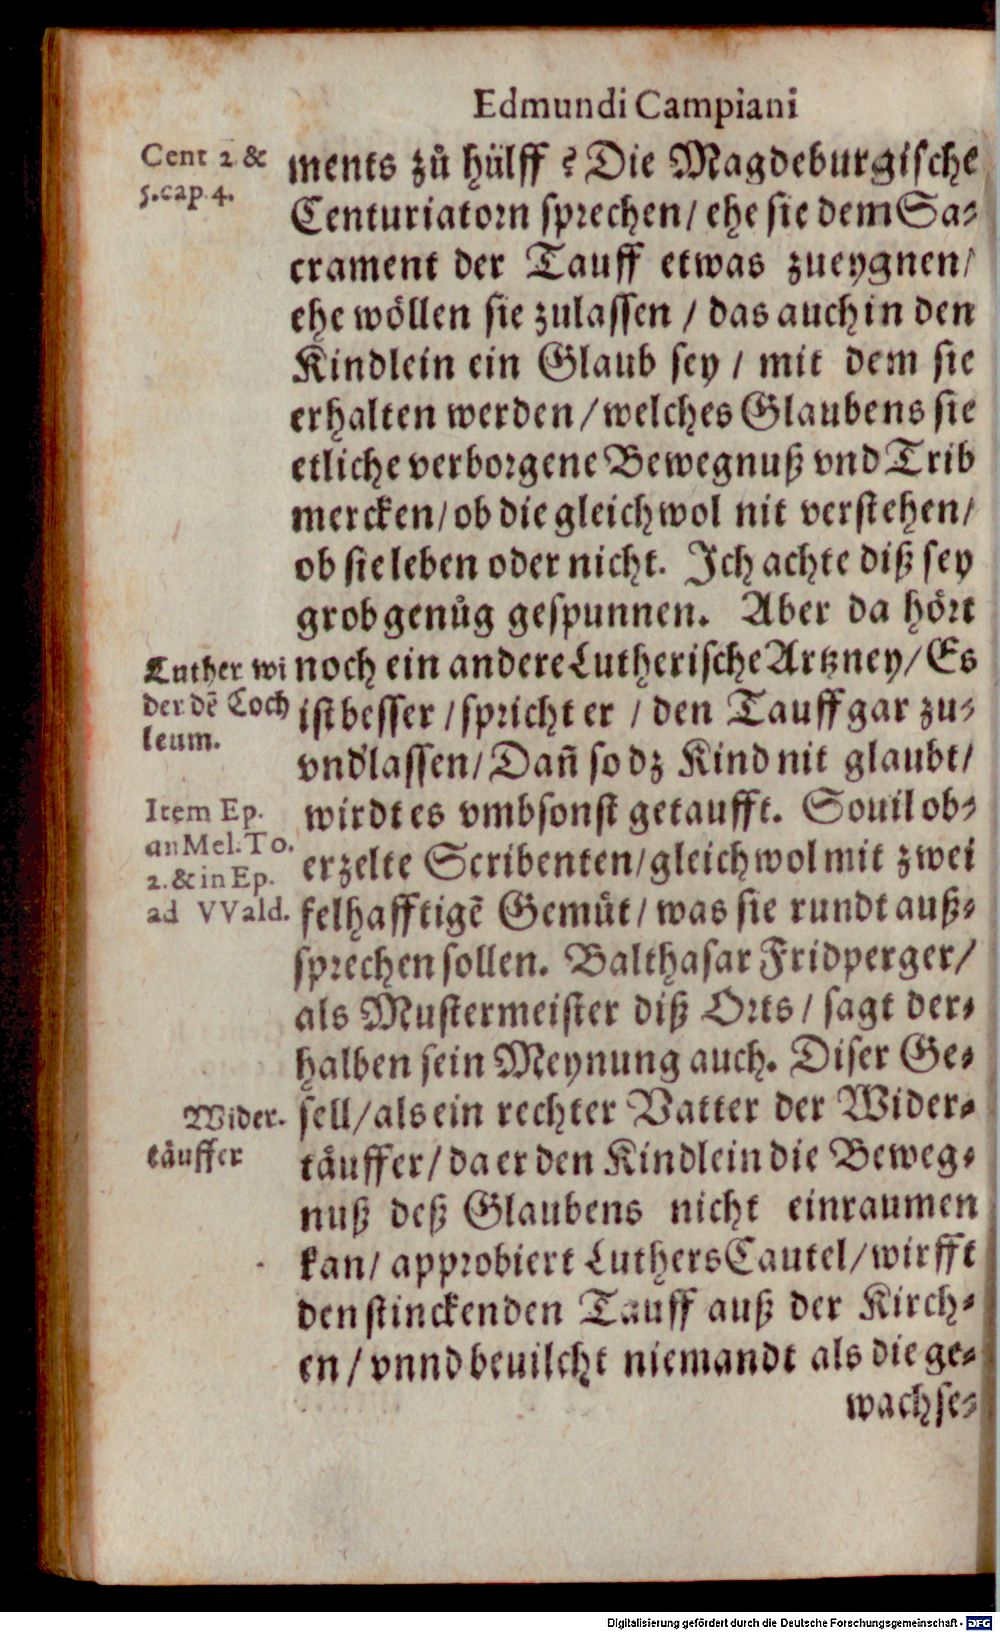 Edmundi Campiani
Cent 2 &
5.cap.4.
ments zů hülff? Die Magdeburgische
Centuriatorn sprechen/ ehe sie dem Sa-
crament der Tauff etwas zueygnen/
ehe wöllen sie zulassen / das auch in den
Kindlein ein Glaub sey / mit dem sie
erhalten werden / welches Glaubens sie
etliche verborgene Bewegnuß vnd Trib
mercken/ ob die gleichwol nit verstehen/
ob sie leben oder nicht. Ich achte diß sey
grob genůg gespunnen. Aber da hört
Luther wi
der dē Coch
leum.
noch ein andere Lutherische Artzney/ Es
ist besser / spricht er / den Tauff gar zu-
vnd'lassen/ Dañ so dz Kind nit glaubt/
Item Ep.
an Mel. To.
2. & in Ep.
ad VVald.
wirdt es vmbsonst getaufft. Souil ob-
erzelte Scribenten/ gleichwol mit zwei
felhafftigē Gemüt/ was sie rundt auß-
sprechen sollen. Balthasar Fridperger/
als Mustermeister diß Orts / sagt der-
halben sein Meynung auch. Diser Ge-
Wider.
täuffer
sell/ als ein rechter Vatter der Wider-
täuffer/ da er den Kindlein die Beweg-
nuß deß Glaubens nicht einraumen
kan/ approbiert Luthers Cautel/ wirfft
den stinckenden Tauff auß der Kirch-
en/ vnnd beuilcht niemandt als die ge-
wachse-
Digitalisierung gefördert durch die Deutsche Forschungsgemeinschaft - DFG